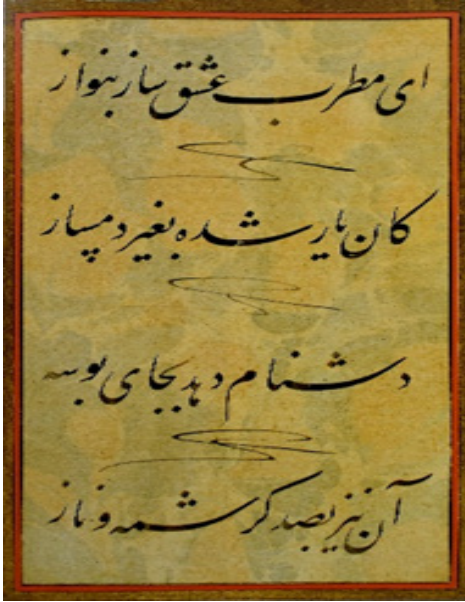 ای مطرب عشق ساز بنواز
کان یار شده بغیر دمساز
دشنام دهد بجای بوسه
آن نیز بصد کرشمه و ناز